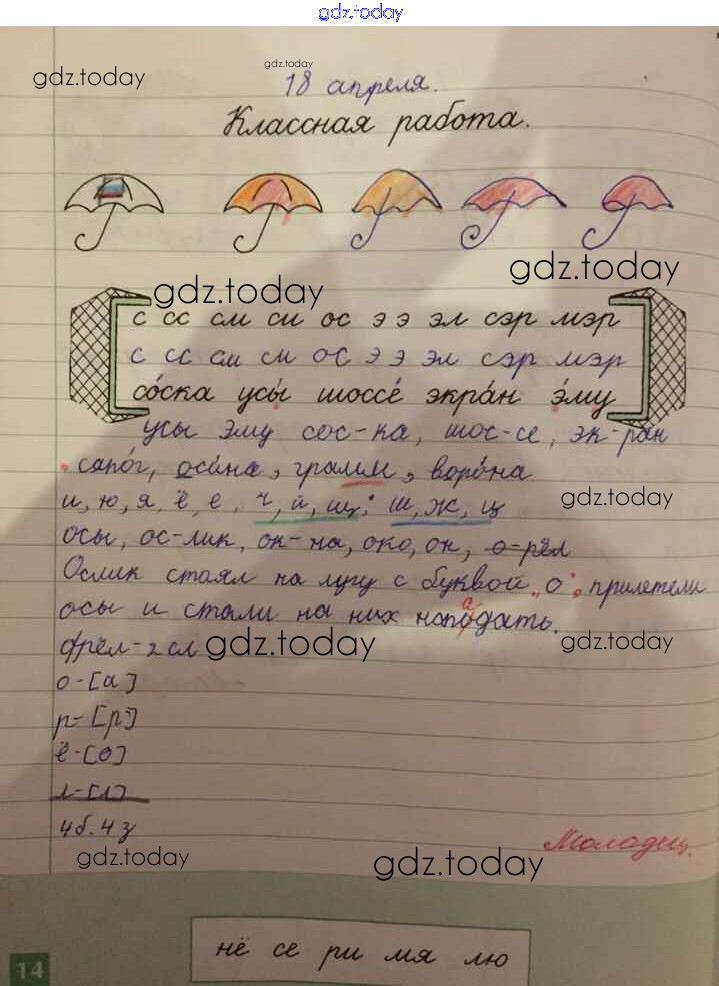 gdz.today
gdz.today
gdz.today
18 апреля.
Классная работа.
gdz.today
gdz.today
с сс см си ос э э эл сэр мэр
с сс см см ос э э эл сэр мэр
со́ска усы́ шоссе́ экра́н э́му
усы эму сос-ка, шос-се, эк-ран
сапо́г, оси́на, грамм, воро́на
и, ю, я, ё, е, ч, й, щ; ш, ж, ц
gdz.today
осы, ос-лик, ок-на, око, он, о-рёл
Ослик стоял на лугу с буквой „о", прилетели
осы и стали на них нападать.
орёл-2 сл
gdz.today
gdz.today
о-[а]
р-[р']
ё-[о]
л-[л]
4б. 4з
Молодец.
gdz.today
gdz.today
нё се ри мя лю
14